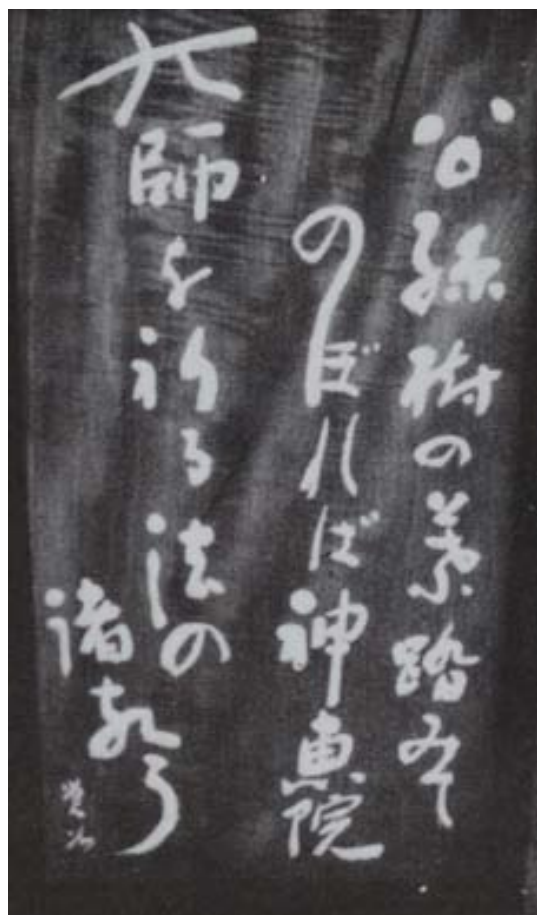 公孫樹の葉踏みて
のぼれば神恵院
大師を祈る法の
諸聲